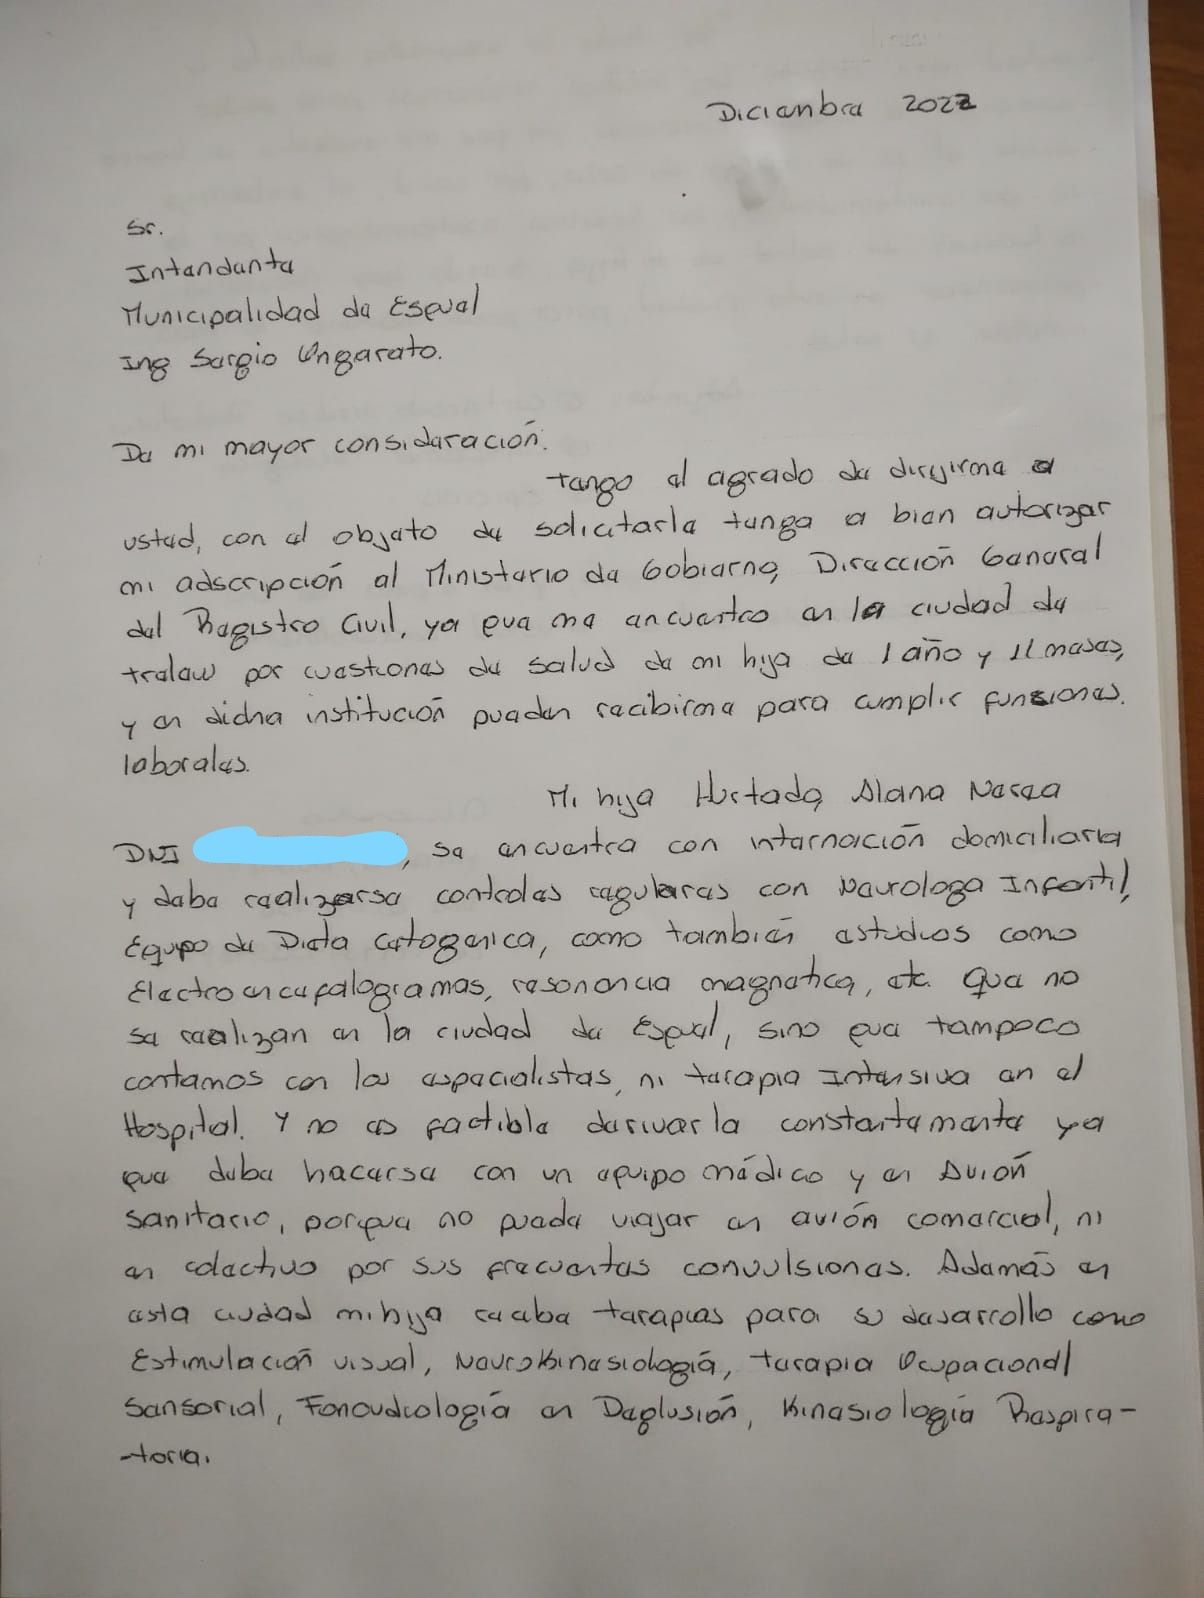 Diciembre 2022
Sr.
Intendente
Municipalidad de Esquel
Ing Sergio Ongarato.
De mi mayor consideración:
Tengo el agrado de dirijirme a
usted, con el objeto de solicitarle tenga a bien autorizar
mi adscripción al Ministerio de Gobierno, Dirección General
del Registro Civil, ya que me encuentro en la ciudad de
trelew por cuestiones de salud de mi hija de 1 año y 11 meses,
y en dicha institución pueden recibirme para cumplir funciones.
laborales.
Mi hija Hurtado, Alana Nerea
DNI , se encuentra con internación domiciliaria
y debe realizarse controles regulares con Neurologa Infantil,
Equipo de Dieta Cetogenica, como también estudios como
Electroencefalogramas, resonancia magnetica, etc. Que no
se realizan en la ciudad de Esquel, sino que tampoco
contamos con los especialistas, ni terapia Intensiva en el
Hospital. Y no es factible derivarla constantemente ya
que debe hacerse con un equipo médico y en Avión
sanitario, porque no puede viajar en avión comercial, ni
en colectivo por sus frecuentes convulsiones. Además en
esta ciudad mi hija recibe terapias para su desarrollo como
Estimulación visual, Neurokinesiología, terapia Ocupacional
Sensorial, Fonoudiología en Deglusión, Kinesiología Respira-
-toria.